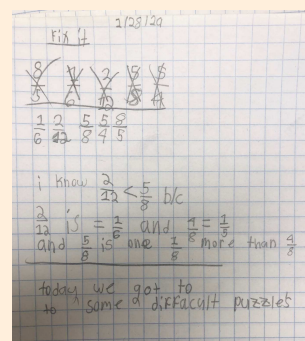 2/28/20
Fix it
1/6 2/12 5/8 5/4 8/5
i know 2/12 < 5/8 b/c
2/12 is = 1/6 and 4/8 = 1/2
and 5/8 is one 1/8 more than 4/8
today we got to
to some difficult puzzles